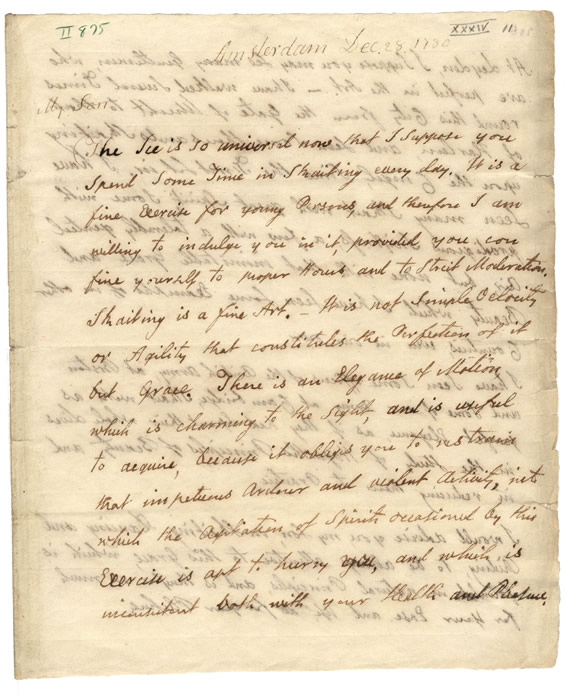 II 875
XXXIV
11
Amsterdam Dec. 28 1780
My Son
The Ice is so universal now that I suppose you
Spend Some Time in Skaiting every day. It is a
fine Exercise for young Persons, and therefore I am
willing to indulge you in it, provided you con
fine yourself to proper Hours, and to Strict Moderation.
Skaiting is a fine Art. – It is not Simple Velocity
or Agility that constitutes the Perfection of it
but Grace. There is an Elegance of Motion
which is charming to the Sight, and is useful
to acquire, because it obliges you to restrain
that impetuous Ardour and violent Activity, into
which the Agitation of Spirits occasioned by this
Exercise is apt to hurry you, and which is
inconsistent both with your Health and Pleasure.